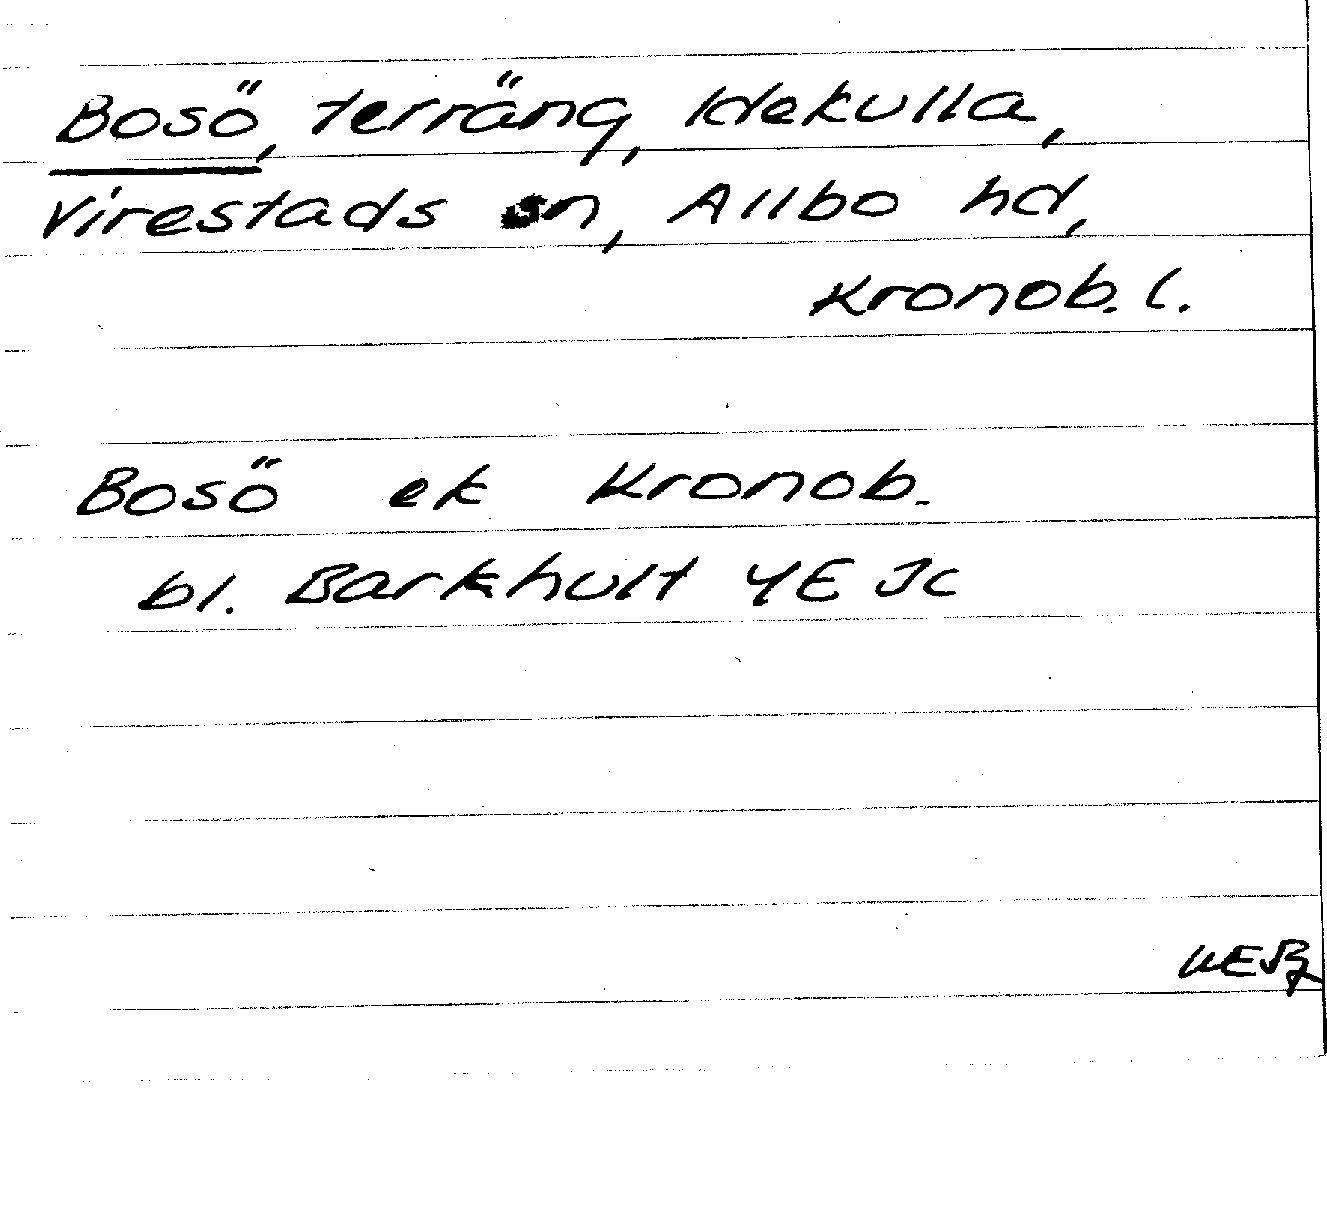 Bosö, terräng, Idekulla,
Virestads sn, Allbo hd,
Kronob. l.
Bosö ek Kronob.
bl. Barkhult 4E Jc